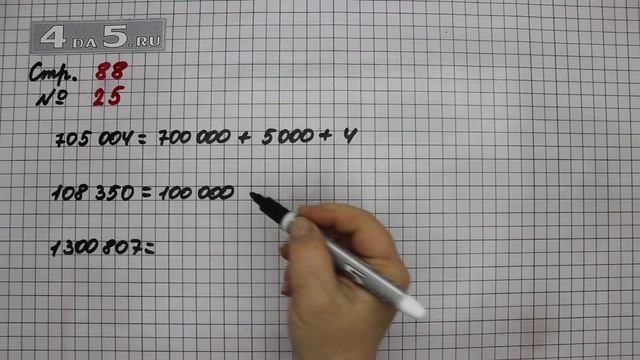 4DA5.RU
Стр. 88
№ 25
705 004 = 700 000 + 5 000 + 4
108 350 = 100 000
1300 807 =